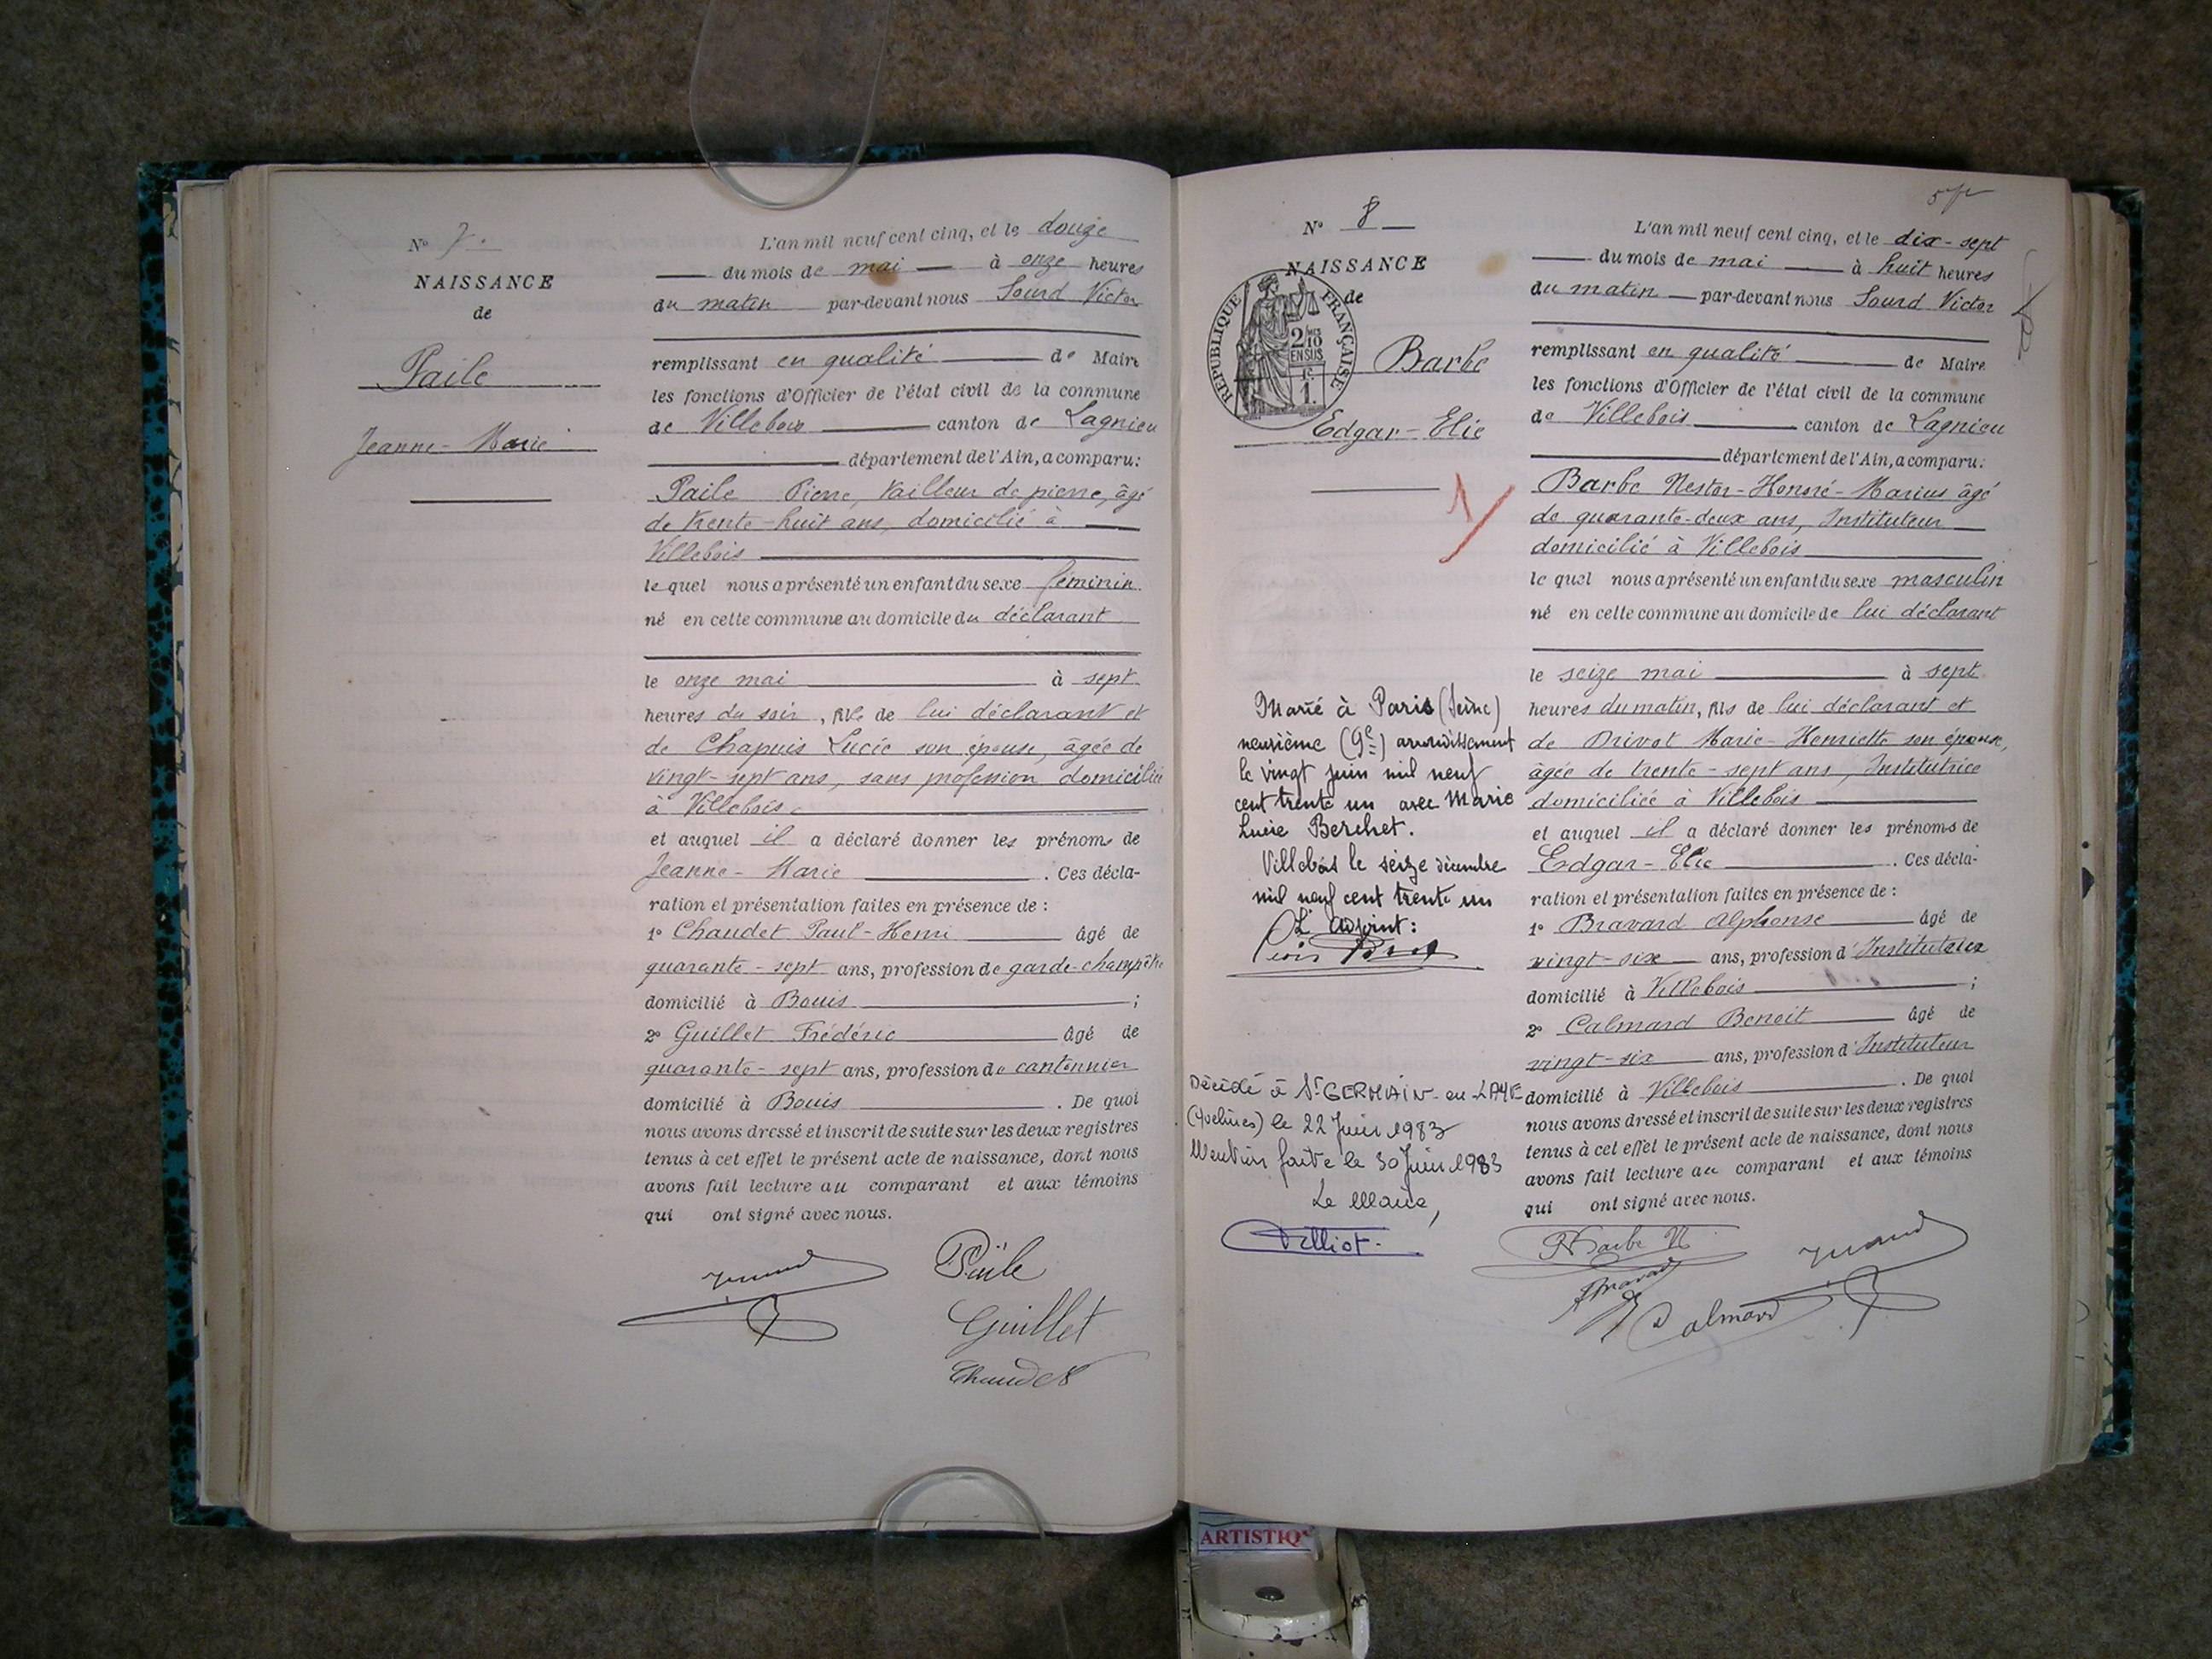 N° 7.
NAISSANCE
de
Paile
Jeanne-Marie
L'an mil neuf cent cinq, et le douze
du mois de mai à onze heures
du matin par-devant nous Sourd Victor
remplissant en qualité de Maire
les fonctions d'Officier de l'état civil de la commune
de Villebois canton de Lagnieu
département de l'Ain, a comparu:
Paile Pierre, tailleur de pierre, âgé
de trente-huit ans, domicilié à
Villebois
lequel nous a présenté un enfant du sexe féminin
né en cette commune au domicile du déclarant
le onze mai à sept
heures du soir, fille de lui déclarant et
de Chapuis Lucie son épouse, âgée de
vingt-sept ans, sans profession domiciliée
à Villebois
et auquel il a déclaré donner les prénoms de
Jeanne-Marie . Ces décla-
ration et présentation faites en présence de :
1° Chaudet Paul-Henri âgé de
quarante-sept ans, profession de garde-champêtre
domicilié à Bouis ;
2° Guillet Frédéric âgé de
quarante-sept ans, profession de cantonnier
domicilié à Bouis . De quoi
nous avons dressé et inscrit de suite sur les deux registres
tenus à cet effet le présent acte de naissance, dont nous
avons fait lecture au comparant et aux témoins
qui ont signé avec nous.
Paile
Guillet
Chaudet
57
N° 8
NAISSANCE
de
REPUBLIQUE FRANÇAISE
2/10
EN SUS
1.
Barbe
Edgar-Elie
Marié à Paris (Seine)
neuvième (9e) arrondissement
le vingt juin mil neuf
cent trente un avec Marie
Lucie Berchet.
Villebois le seize décembre
mil neuf cent trente un
L'Adjoint :
Décédé à St GERMAIN-en-LAYE
(Yvelines) le 22 Juin 1983
Mention faite le 30 Juin 1983
Le Maire,
L'an mil neuf cent cinq, et le dix-sept
du mois de mai à huit heures
du matin par-devant nous Sourd Victor
remplissant en qualité de Maire
les fonctions d'Officier de l'état civil de la commune
de Villebois canton de Lagnieu
département de l'Ain, a comparu:
Barbe Nestor-Honoré-Marius âgé
de quarante-deux ans, Instituteur
domicilié à Villebois
lequel nous a présenté un enfant du sexe masculin
né en cette commune au domicile de lui déclarant
le seize mai à sept
heures du matin, fils de lui déclarant et
de Drivot Marie-Henriette son épouse,
âgée de trente-sept ans, Institutrice
domiciliée à Villebois
et auquel il a déclaré donner les prénoms de
Edgar-Elie . Ces décla-
ration et présentation faites en présence de :
1° Bravard Alphonse âgé de
vingt-six ans, profession d'Instituteur
domicilié à Villebois ;
2° Calmard Benoit âgé de
vingt-six ans, profession d'Instituteur
domicilié à Villebois . De quoi
nous avons dressé et inscrit de suite sur les deux registres
tenus à cet effet le présent acte de naissance, dont nous
avons fait lecture au comparant et aux témoins
qui ont signé avec nous.
Barbe N
Bravard
Calmard
ARTISTIQ